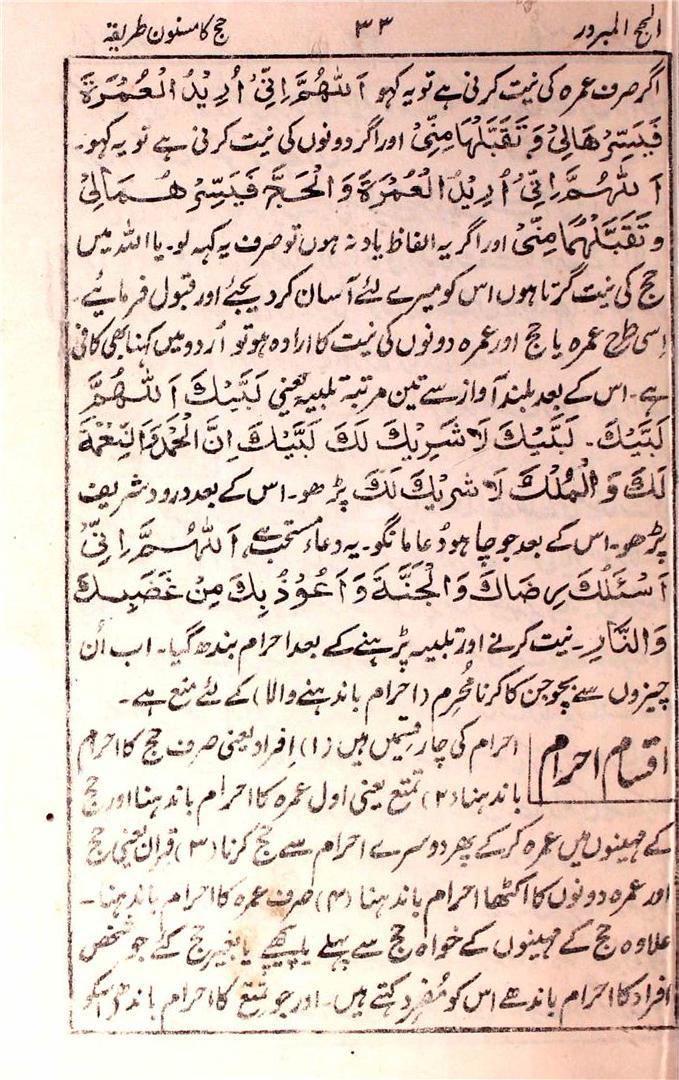 الحج المبرور ۳۳ حج کا مسنون طریقہ
اگر صرف عمرہ کی نیت کرنی ہے تو یہ کہو اَللّٰهُمَّ اِنِّیْ اُرِیْدُ الْعُمْرَةَ
فَیَسِّرْهَا لِیْ وَتَقَبَّلْهَا مِنِّیْ اور اگر دونوں کی نیت کرنی ہے تو یہ کہو۔
اَللّٰهُمَّ اِنِّیْ اُرِیْدُ الْعُمْرَةَ وَالْحَجَّ فَیَسِّرْهُمَا لِیْ
وَتَقَبَّلْهُمَا مِنِّیْ اور اگر یہ الفاظ یاد نہ ہوں تو صرف یہ کہہ لو۔ یا اللہ میں
حج کی نیت کرتا ہوں اس کو میرے لئے آسان کر دیجئے اور قبول فرمائیے۔
اِسی طرح عمرہ یا حج اور عمرہ دونوں کی نیت کا ارادہ ہو تو اُردو میں کہنا بھی کافی
ہے۔ اس کے بعد بلند آواز سے تین مرتبہ تلبیہ یعنی لَبَّیْكَ اَللّٰهُمَّ
لَبَّیْكَ۔ لَبَّیْكَ لَا شَرِیْكَ لَكَ لَبَّیْكَ اِنَّ الْحَمْدَ وَالنِّعْمَةَ
لَكَ وَالْمُلْكَ لَا شَرِیْكَ لَكَ پڑھو۔ اس کے بعد درود شریف
پڑھو۔ اس کے بعد جو چاہو دُعا مانگو۔ یہ دعاء مستحب ہے، اَللّٰهُمَّ اِنِّیْ
اَسْئَلُكَ رِضَاكَ وَالْجَنَّةَ وَاَعُوْذُ بِكَ مِنْ غَضَبِكَ
وَالنَّارِ۔ نیت کرنے اور تلبیہ پڑھنے کے بعد احرام بندھ گیا۔ اب اُن
چیزوں سے بچو جن کا کرنا مُحْرِم (احرام باندھنے والا) کے لئے منع ہے۔
اقسام احرام احرام کی چار قسمیں ہیں (۱) اِفراد یعنی صرف حج کا احرام
باندھنا (۲) تمتع یعنی اول عمرہ کا احرام باندھنا اور حج
کے مہینوں میں عمرہ کر کے پھر دوسرے احرام سے حج کرنا (۳) قِران یعنی حج
اور عمرہ دونوں کا اکٹھا احرام باندھنا (۴) صرف عمرہ کا احرام باندھنا۔
علاوہ حج کے مہینوں کے خواہ حج سے پہلے یا پیچھے یا بغیر حج کئے جو شخص
افراد کا احرام باندھے اس کو مُفرِد کہتے ہیں۔ اور جو تمتع کا احرام باندھے اسکو